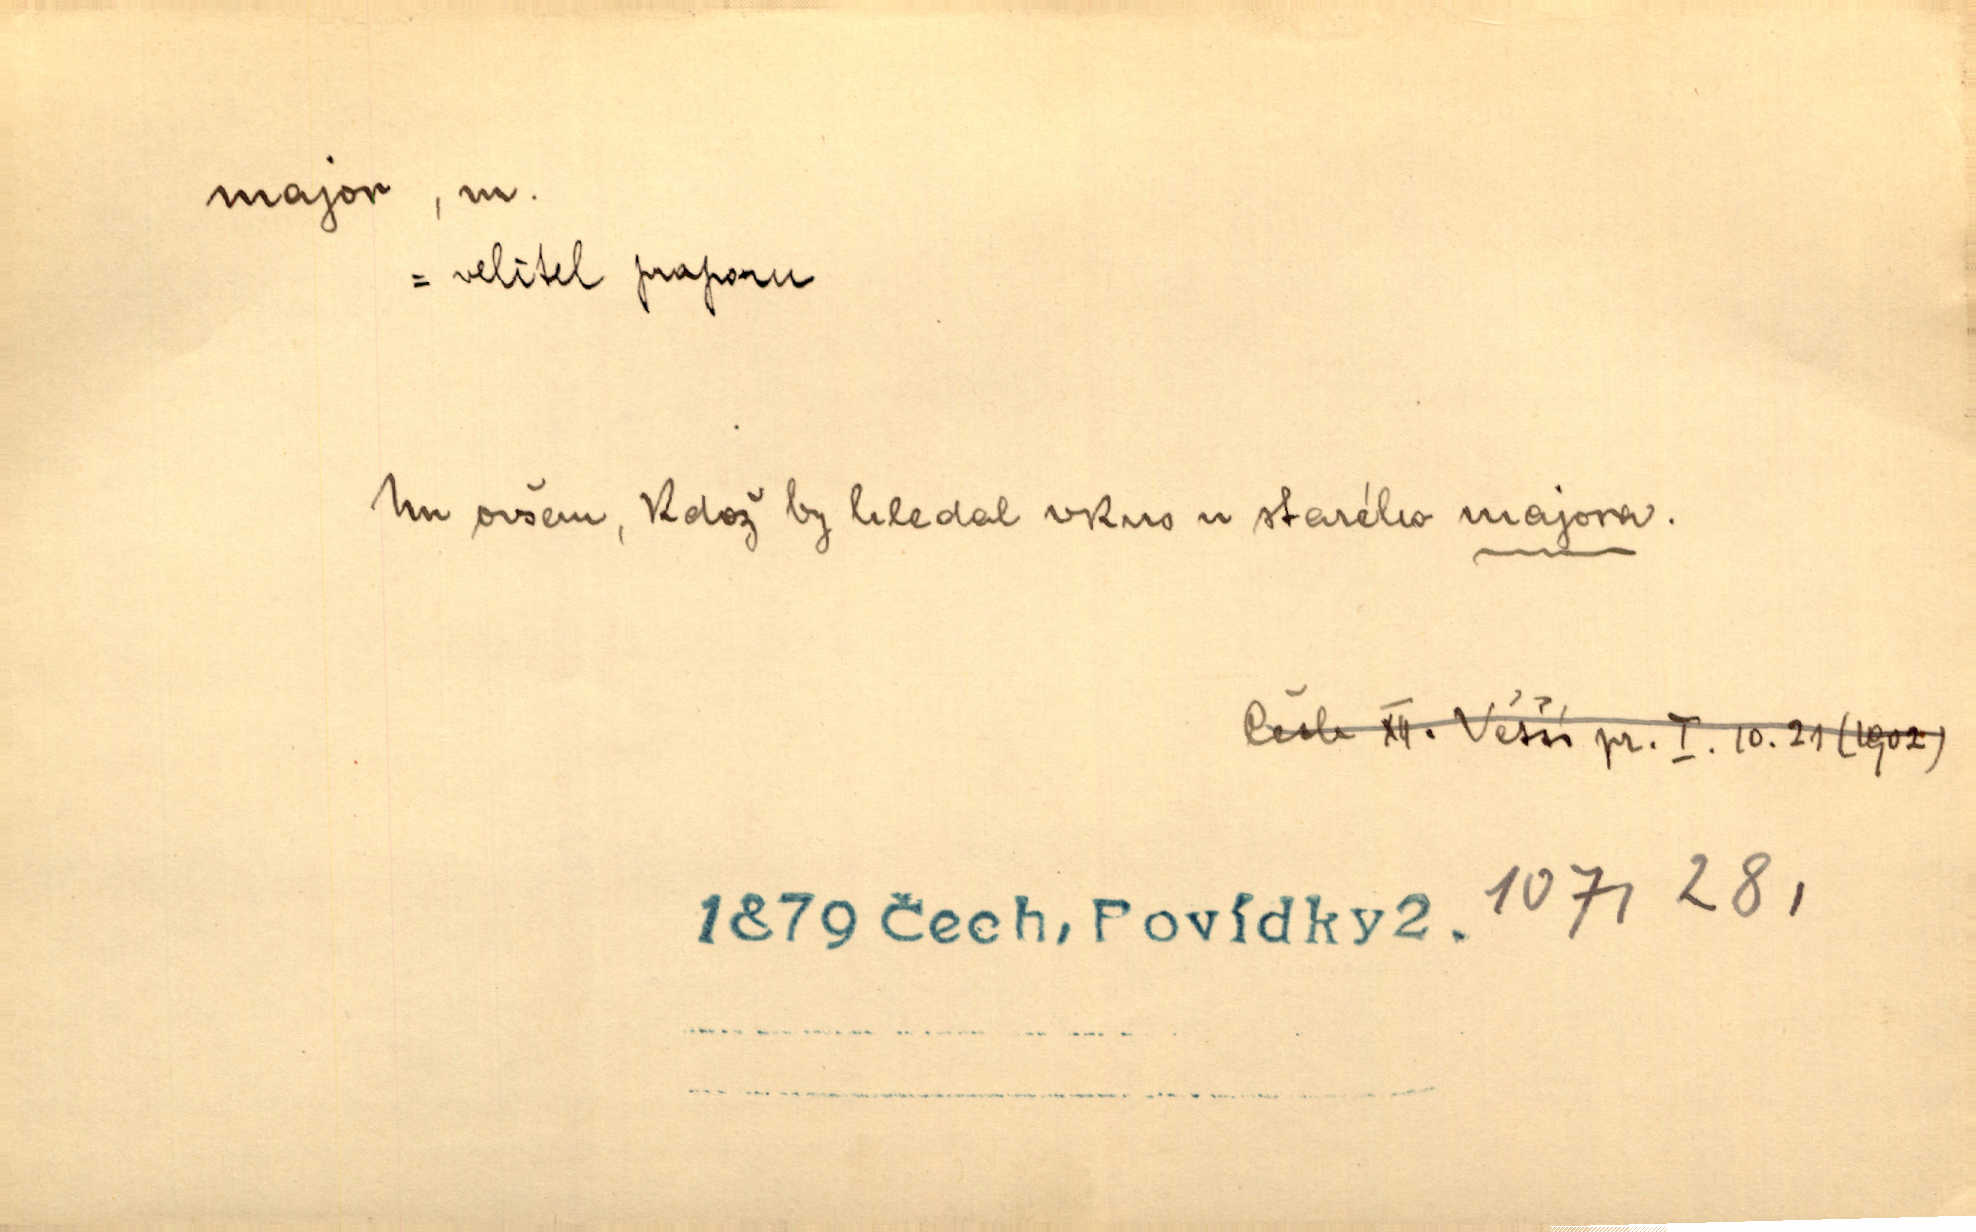 major, m.
= velitel praporu
Nu ovšem, kdož by hledal vkus u starého majora.
Čech XII. Věší pr. I. 10. 21 (1902)
1879 Čech, Povídky 2. 107, 28,